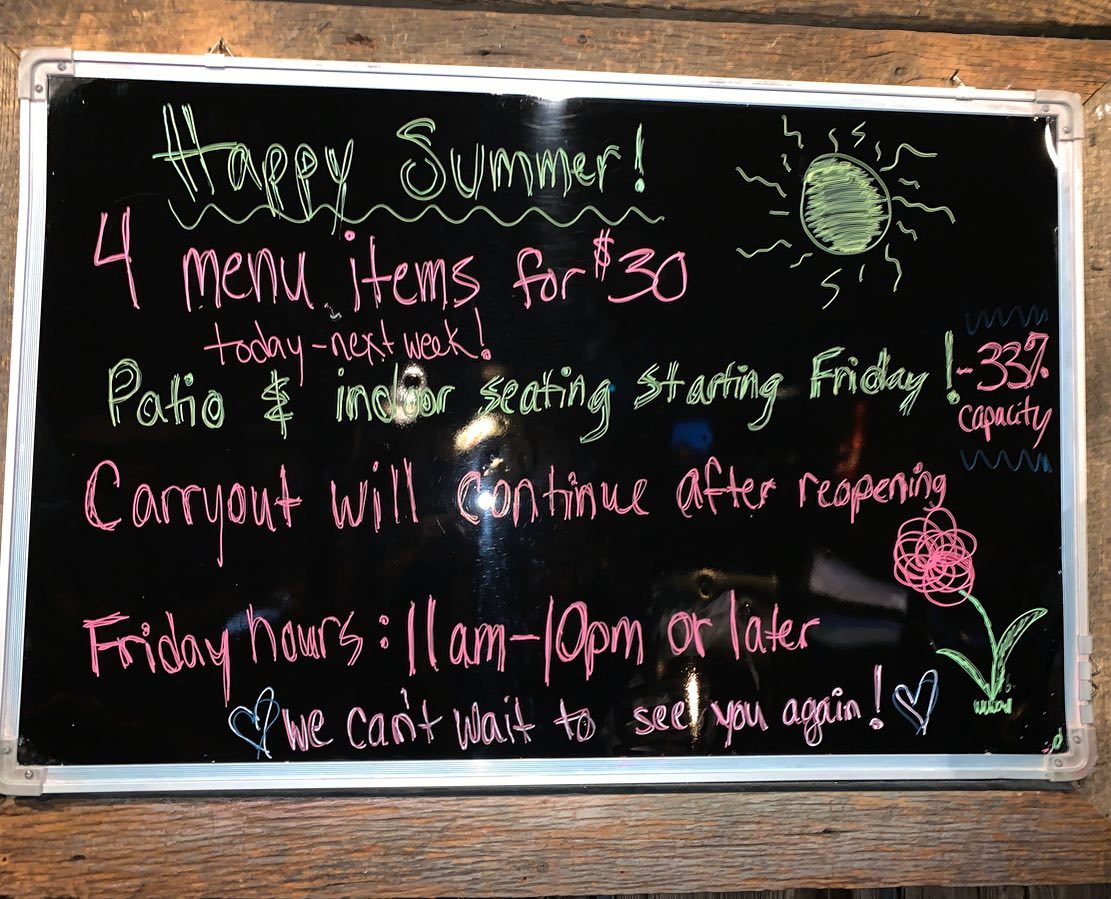 Happy Summer!
4 menu items for $30
today-next week!
Patio & indoor seating starting Friday!
-33%
capacity
Carryout will continue after reopening
Friday hours: 11am-10pm or later
we can't wait to see you again!